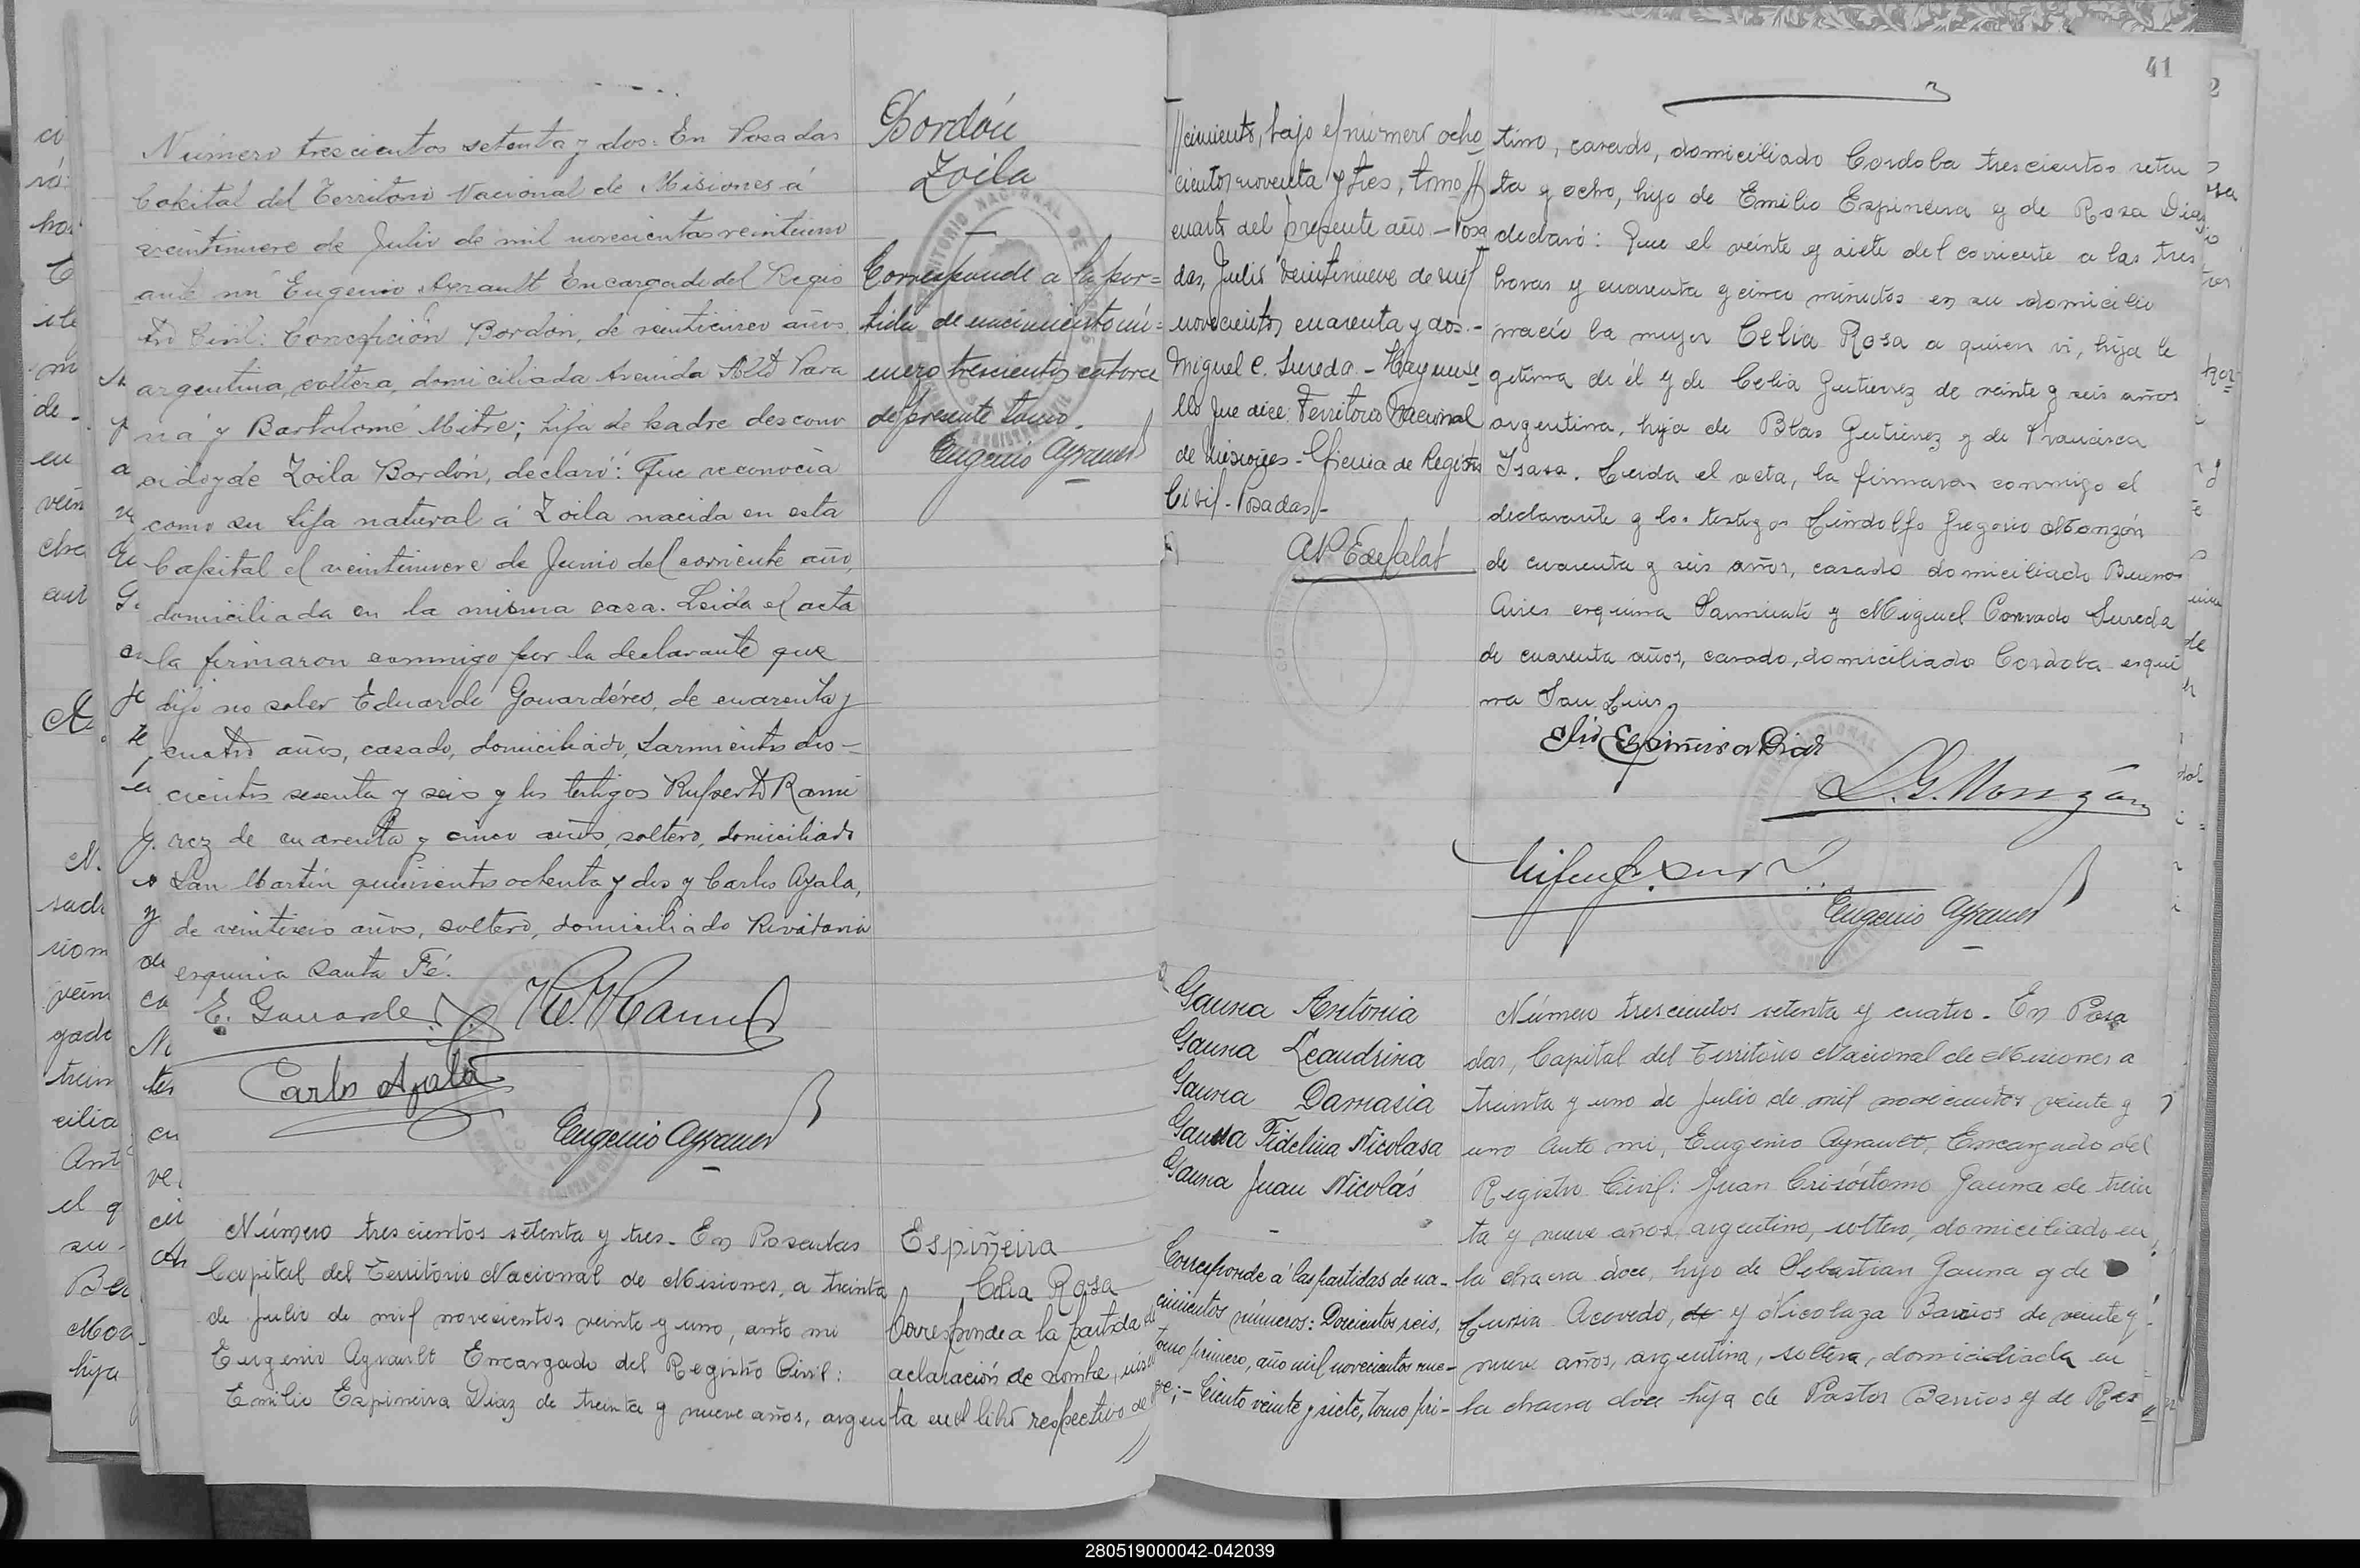 Número trescientos setenta y dos: En Posadas
Capital del Territorio Nacional de Misiones á
veintinueve de Julio de mil novecientos veintiuno
ante mi Eugenio Ayrault Encargado del Regis
tro Civil: Concepción Bordón, de veinticinco años
argentina, soltera, domiciliada Avenida Alto Para
ná y Bartolomé Mitre; hija de padre descono
cido y de Zoila Bordón, declaró: Que reconocia
como su hija natural á Zoila nacida en esta
Capital el veintinueve de Junio del corriente año,
domiciliada en la misma casa. Leida el acta
la firmaron conmigo por la declarante que
dijo no saber Eduardo Gouardéres, de cuarenta y
cuatro años, casado, domiciliado, Sarmiento dos-
cientos sesenta y seis y los testigos Ruperto Rami
rez de cuarenta y cinco años, soltero, domiciliado
San Martín quinientos ochenta y dos y Carlos Ayala,
de veintiseis años, soltero, domiciliado Rivadavia
esquina Santa Fé.
Carlos Ayala
Eugenio Ayrault
Bordón
Zoila
Corresponde a la par=
tida de nacimiento nú=
mero trescientos catorce
de presente tomo.
Eugenio Ayrault
Número trescientos setenta y tres. En Posadas
Capital del Territorio Nacional de Misiones, a treinta
de Julio de mil novecientos veinte y uno, ante mi
Eugenio Ayrault Encargado del Registro Civil:
Emilio Espineira Diaz de treinta y nueve años, argen
Espiñeira
Celia Rosa
Corresponde a la partida de
aclaración de nombre, inscri
ta en el libro respectivo de
41
//cimiento, bajo el número ocho
cientos noventa y tres, tomo
cuarto del presente año. - Posa
das, Julio veintinueve de mil
novecientos cuarenta y dos. -
Miguel C. Sureda. - Hay un se
llo que dice: Territorio Nacional
de Misiones - Oficina de Registro
Civil - Posadas -
tino, casado, domiciliado Cordoba trescientos seten
ta y ocho, hijo de Emilio Espineira y de Rosa Diaz
declaró: Que el veinte y siete del corriente a las tres
horas y cuarenta y cinco minutos en su domicilio
nació la mujer Celia Rosa a quien vi, hija le
gitima de él y de Celia Gutierrez de veinte y seis años
argentina, hija de Blas Gutierrez y de Francisca
Isasa. Leida el acta, la firmaron conmigo el
declarante y los testigos Lindolfo Gregorio Monzón
de cuarenta y seis años, casado domiciliado Buenos
Aires esquina Sarmiento y Miguel Conrado Sureda
de cuarenta años, casado, domiciliado Cordoba esqui
na San Luis.
Espiñeira Diaz
L. G. Monzón
Eugenio Ayrault
Gauna Antonia
Gauna Leandrina
Gauna Damasia
Gauna Fidelina Nicolasa
Gauna Juan Nicolás
Corresponde á las partidas de na-
cimientos números: Doscientos seis,
tomo primero, año mil novecientos nue-
ve; - Ciento veinte y siete, tomo pri-
Número trescientos setenta y cuatro. En Posa
das, Capital del Territorio Nacional de Misiones a
treinta y uno de Julio de mil novecientos veinte y
uno ante mi, Eugenio Ayrault, Encargado del
Registro Civil: Juan Crisóstomo Gauna de trein
ta y nueve años, argentino, soltero, domiciliado en
la chacra doce, hijo de Sebastian Gauna y de
Acevedo, y Nicolaza Barrios de veinte y
nueve años, argentina, soltera, domiciliada en
la chacra doce hija de Pastor Barrios y de
280519000042-042039